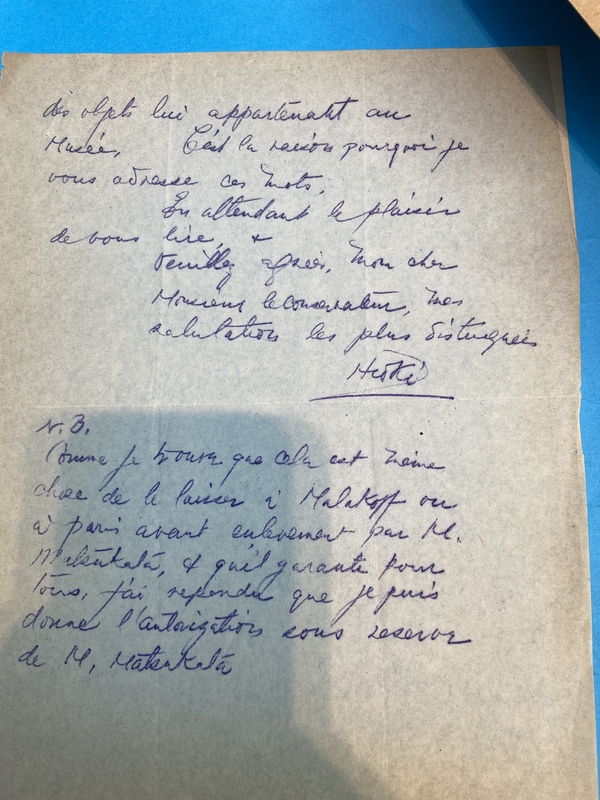 des objets lui appartenant au
Musée, C'est la raison pourquoi je
vous adresse ces mots,
En attendant le plaisir
de vous lire, &
Veuillez agréer, Mon cher
Monsieur le conservateur, mes
salutations les plus distinguées
Hioki
N.B.
Comme je trouve que cela est même
chose de le laisser à Malakoff ou
à paris avant enlevement par M.
Matsukata, & qu'il garantie pour
tous, j'ai repondu que je puis
donne l'autorization sous reserve
de M, Matsukata